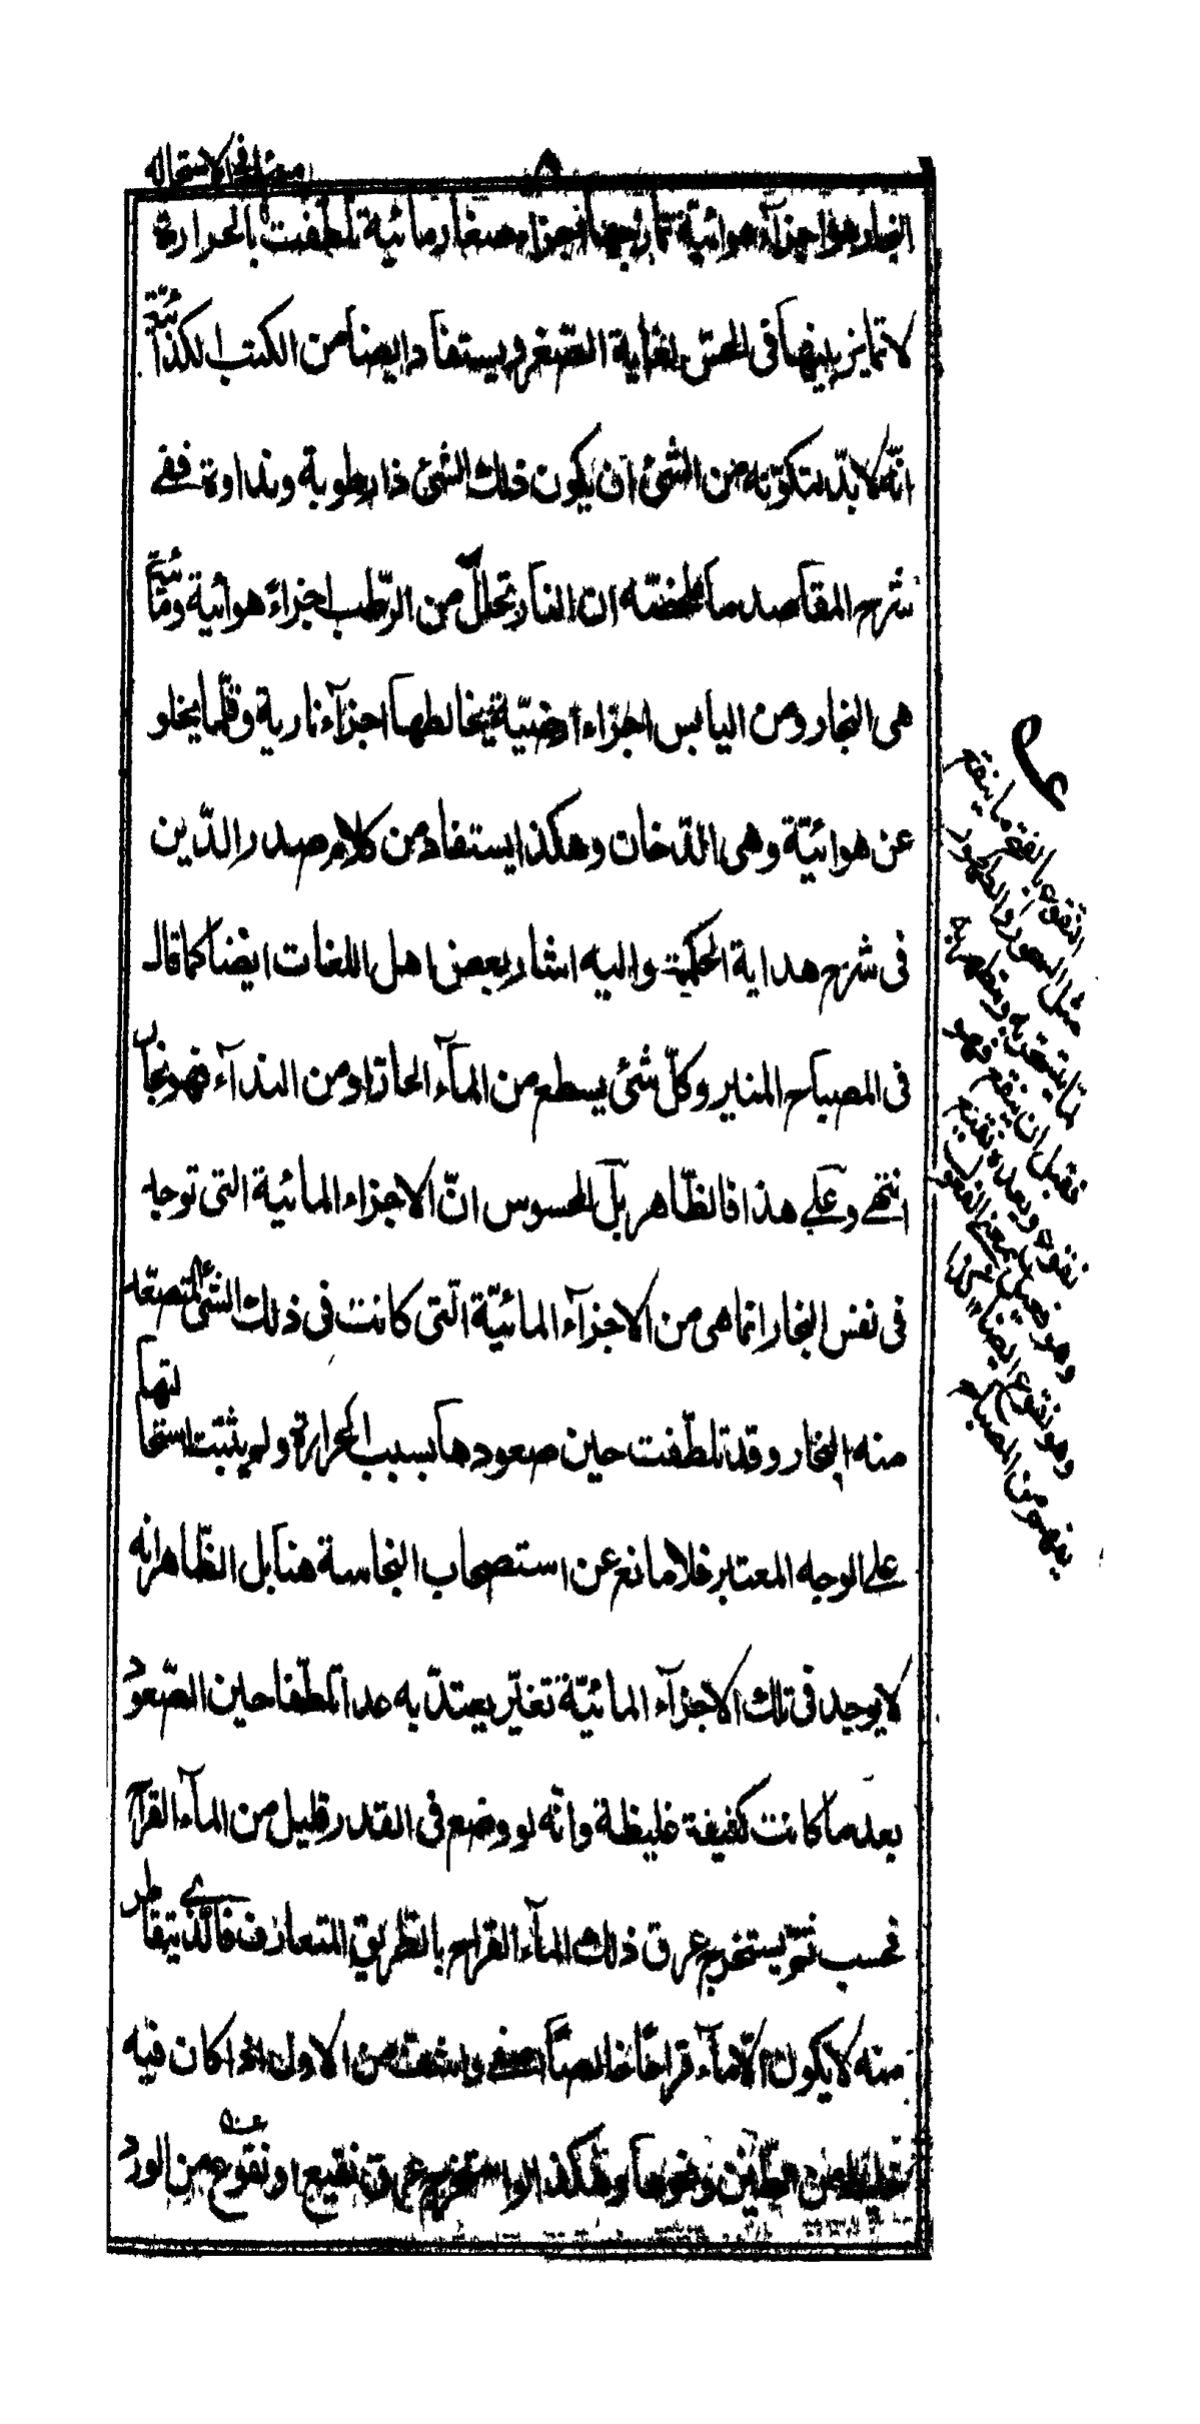 معنى الاستحالة
٨
البخار هو اجزآء هوائيّة تمازجها اجزاء صغار مائية تلطّفت بالحرارة
لا تمايز بينها فى الحسّ لغاية الصّغر ويستفاد ايضا من الكتب لكذائيّة
انّه لا بدّ لتكوّنه من الشئ ان يكون ذلك الشئ ذا رطوبة ونداوة ففى
شرح المقاصد ما ملخصّه ان النار تحلل من الرّطب اجزاءً هوائية ومائيّة
هى البخار ومن اليابس اجزاء ارضيّة يخالطها اجزآء نارية وقلّما يخلو
عن هوائيّة وهى الدّخان وهكذا يستفاد من كلام صدر الدّين
فى شرح هداية الحكمة واليه اشار بعض اهل اللغات ايضا كما قال
فى المصباح المنير وكلّ شئ يسطع من المآء الحارّ او من النداء فهو بخار
انتهى وعلى هذا فالظّاهر بل المحسوس انّ الاجزاء المائية التى توجد
فى نفس البخار انما هى من الاجزآء المائيّة الّتى كانت فى ذلك الشئ المتصعّد
منه البخار وقد تلطّفت حين صعودها بسبب الحرارة ولم يثبت استحالتها
على الوجه المعتبر فلا مانع عن استصحاب النجاسة هنا بل الظّاهر انه
لا يوجد فى تلك الاجزآء المائيّة تغيّر يعتدّ به عدا تلطّفا حين الصّعود
بعد ما كانت كثيفة غليظة وانّه لو وضع فى القدر قليل من المآء القراح
فحسب ثمّ يستخرج عرق ذلك المآء القراح بالطّريق المتعارف فالّذى يتقاطر
منه لا يكون الّا مآء قراحًا خالصًا اصفى واشفّ من الاول اذا كان فيه
من طين ونحوها وهكذا لو استخرج عرق نقيع او نقوع من الورد
النقوع بالفتح ما ينقع
مثل السحور والطهور
ان ينقع فهو
نقوع وبعده نقيع
وهو نقوع ايضاء
يفهم من المصباح